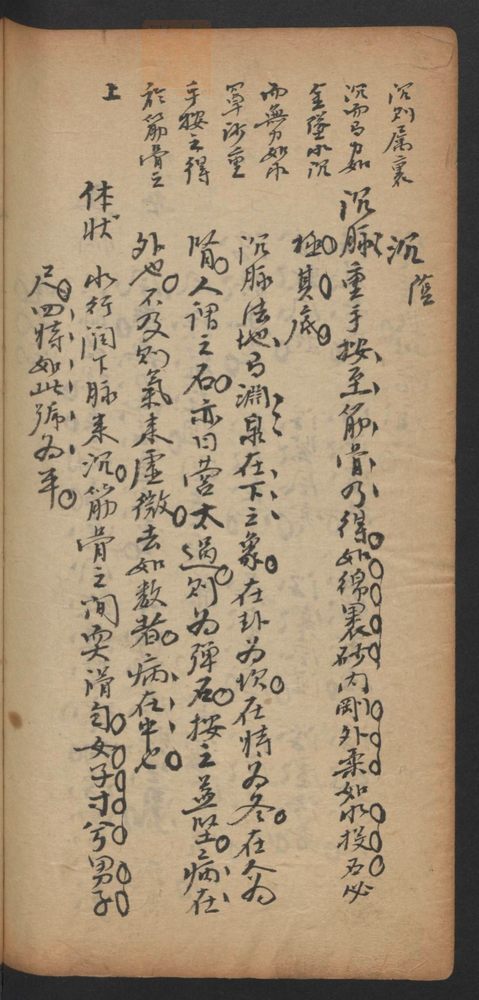 沉則屬裏
沉而有力如
金墜水沉
而無力如水
罩沙重
手按之得
於筋骨之
上
沉 陰
沉脉重手按至筋骨乃得如綿裹砂内剛外柔如水投石必
極其底
沉脉法地有淵泉在下之象在卦为坎在時为冬在人为
腎人謂之石亦曰营太過則为彈石按之益堅病在
外也不及則氣来虛微去如数者病在中也
体状
水行润下脉来沉筋骨之间耎滑匀女子寸兮男子
尺四時如此號为平